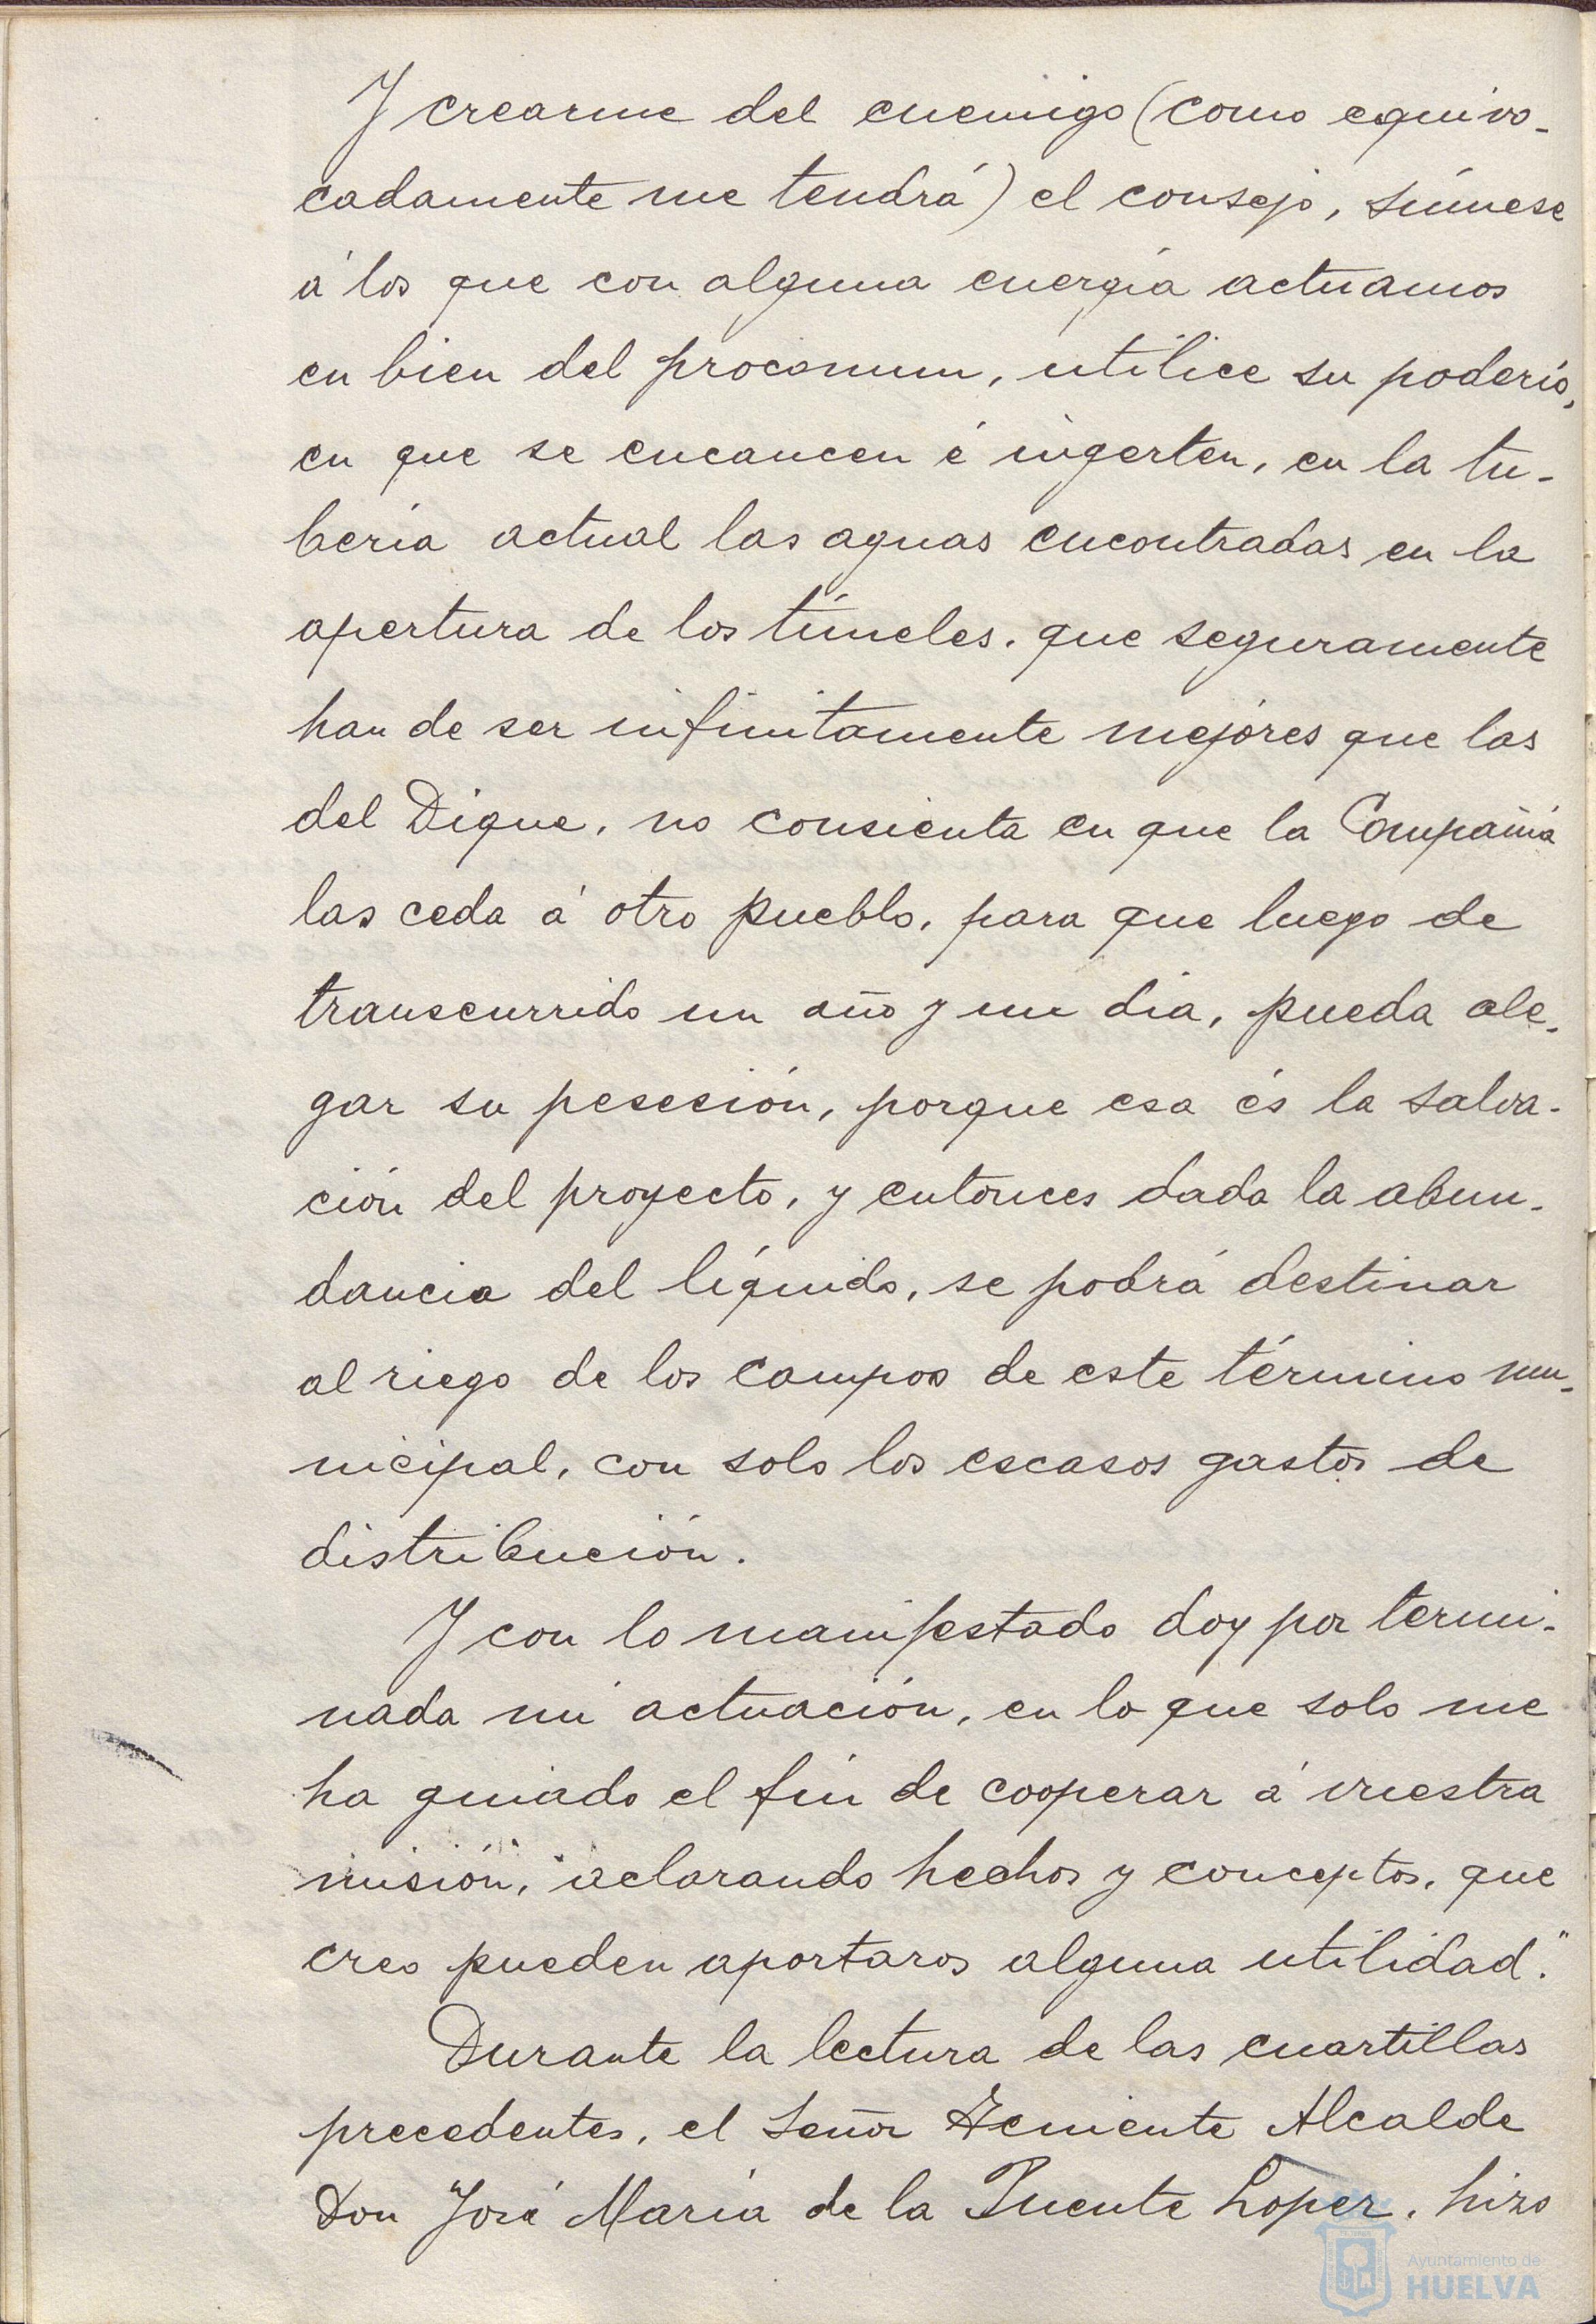 Y crearme del enemigo (como equivo-
cadamente me tendrá) el consejo, súmese
á los que con alguna energía actuamos
en bien del procomun, utilice su poderío,
en que se encaucen é ingerten, en la tu-
bería actual las aguas encontradas en la
apertura de los túneles, que seguramente
han de ser infinitamente mejores que las
del Dique, no consienta en que la Compañía
las ceda á otro pueblo, para que luego de
transcurrido un año y un dia, pueda ale-
gar su pesesión, porque esa és la salva-
ción del proyecto, y entonces dada la abun-
dancia del líquido, se podrá destinar
al riego de los campos de este término mu-
nicipal, con solo los escasos gastos de
distribución.
Y con lo manifestado doy por termi-
nada mi actuación, en lo que solo me
ha guiado el fin de cooperar á vuestra
misión, aclarando hechos y conceptos, que
creo pueden aportaros alguna utilidad."
Durante la lectura de las cuartillas
precedentes, el señor Teniente Alcalde
Don José María de la Puente Lopez, hizo
Ayuntamiento de
HUELVA